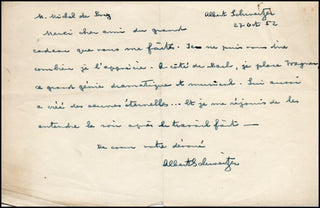 M. Michel de Bry
Albert Schweitzer
27 Oct 52
Merci cher ami du grand
cadeau que vous me faites. Je ne puis vous dire
combien je l'apprécie. A côté de Bach, je place Wagner
ce grand génie dramatique et musical. Lui aussi
a créé des œuvres éternelles... Et je me réjouis de les
entendre le soir après le travail fait —
De cœur votre dévoué
Albert Schweitzer